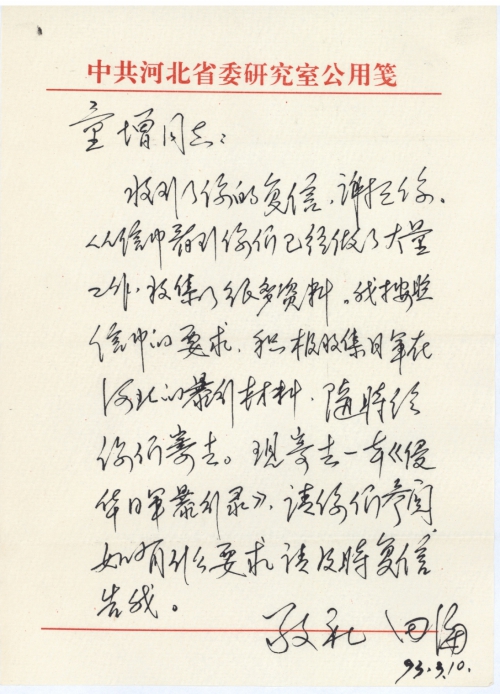 中共河北省委研究室公用笺
童增同志：
收到了你的复信，谢谢你。
从信中看到你们已经做了大量
工作，收集了很多资料。我按照
信中的要求，积极收集日军在
河北的暴行材料，随时给
你们寄去。现寄去一本《侵
华日军暴行录》，请你们参阅
如有什么要求请及時复信
告我。
敬礼 田海
93.3.10.